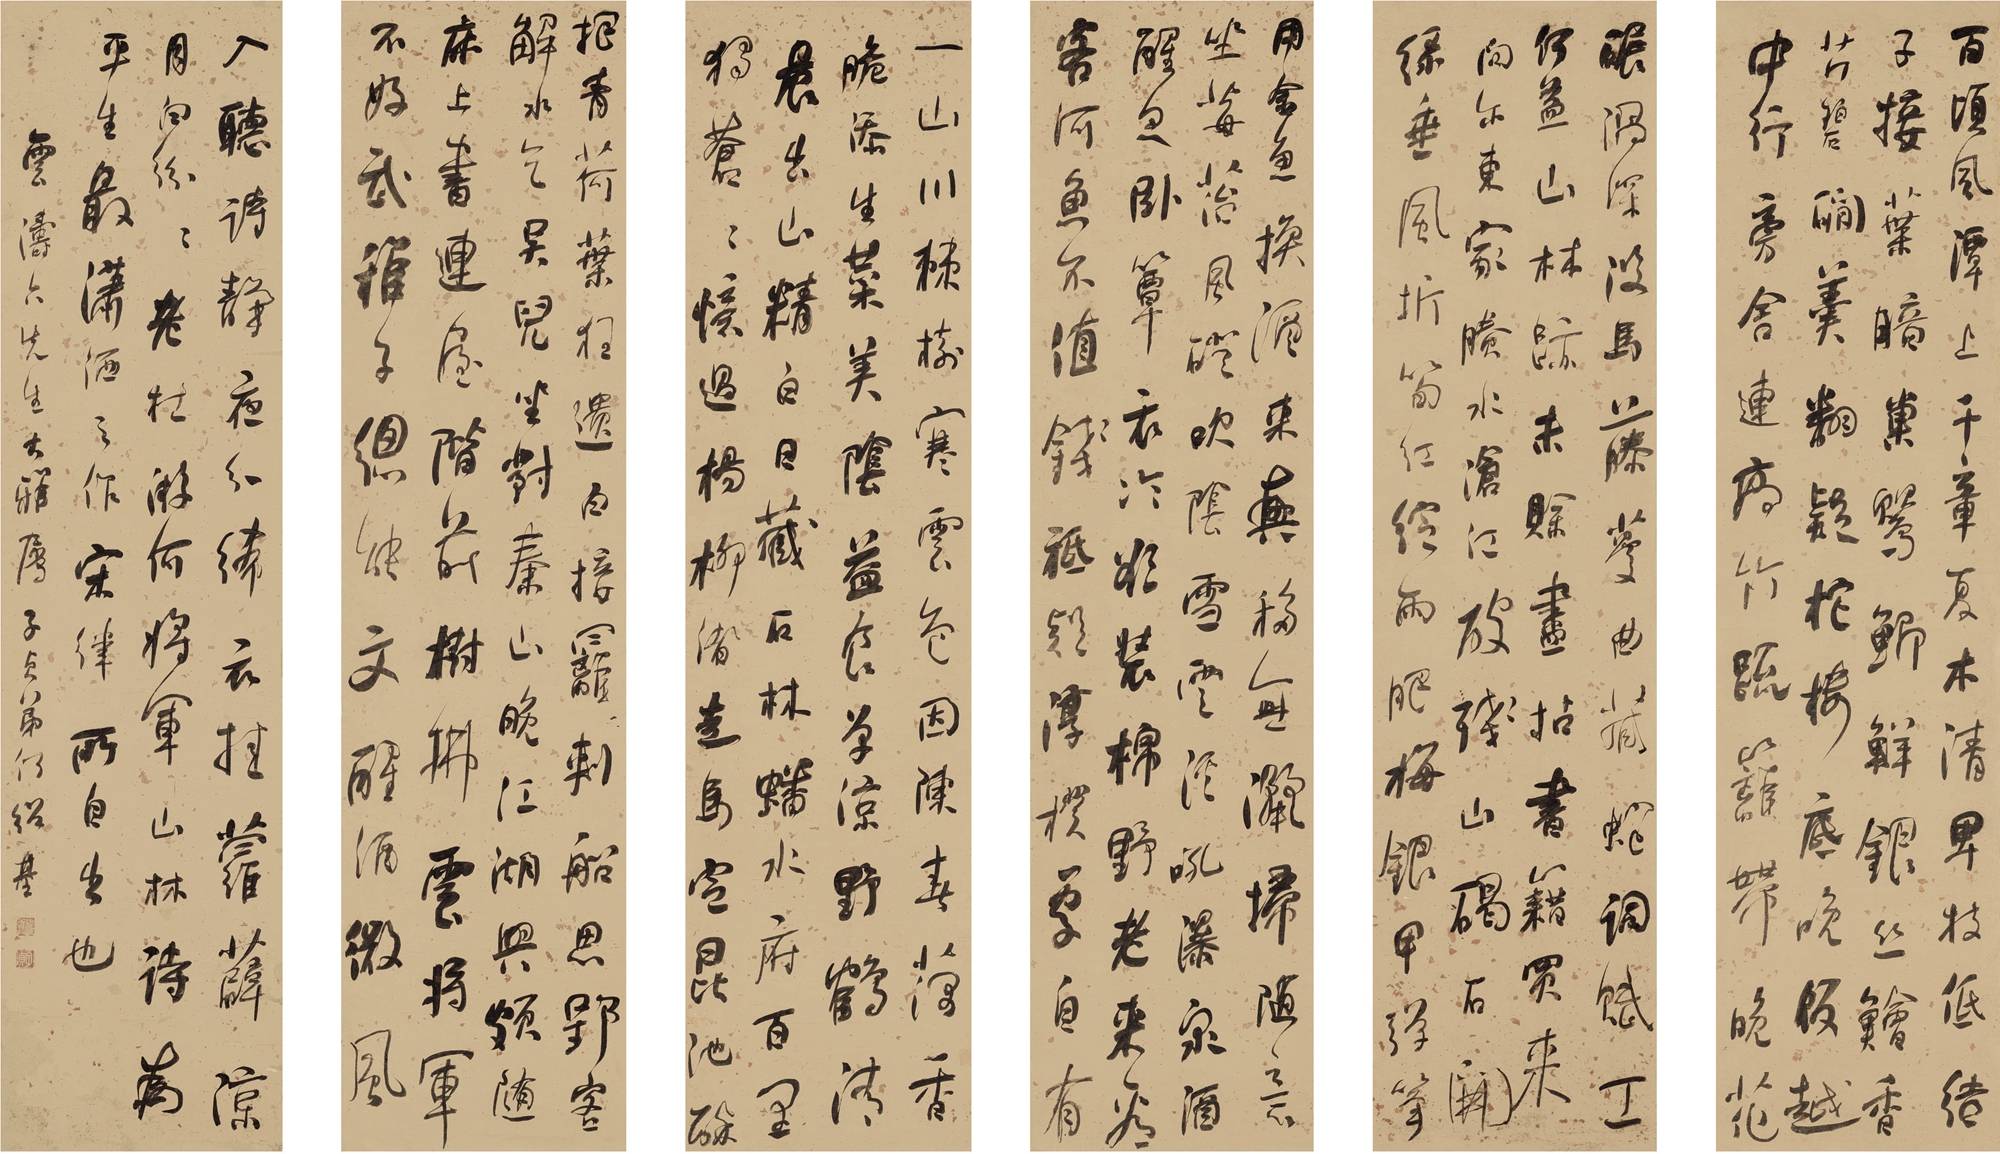 百頃風潭上千章夏木清卑枝低結
子接葉暗巢鶯鯽鮮銀絲鱠香
芹碧澗羹翻疑柁樓底晚飯越
中行旁舍連高竹疏籬帶晚花
碾渦深沒馬藤蔓曲藏蛇詞賦工
何益山林跡未賒盡拈書籍賣來
向爾東家賸水滄江破殘山碣石開
綠垂風折筍紅綻雨肥梅銀甲彈箏
用金魚換酒來興移無灑掃隨意
坐莓苔風磴吹陰雪雲吼瀑泉酒
醒思臥簟衣冷欲裝棉野老來看
客河魚不值錢祗疑淳樸處自有
一山川棘樹寒雲色因陳春藕香
脆添生菜美陰益食單涼野鶴清
晨出山精白日藏石林蟠水府百里
獨蒼〻憶過楊柳渚走馬定昆池醉
把青荷葉狂遺白接䍦刺船思郢客
解水乞吳兒坐對秦山晚江湖興頗隨
床上書連屋階前樹拂雲將軍
不好武稚子總能文醒酒微風
入聽詩靜夜分絺衣挂蘿薜涼
月白紛〻老杜游何將軍山林詩為
平生最瀟洒之作宋律所自出也
雲濤六先生大雅屬子貞弟何紹基